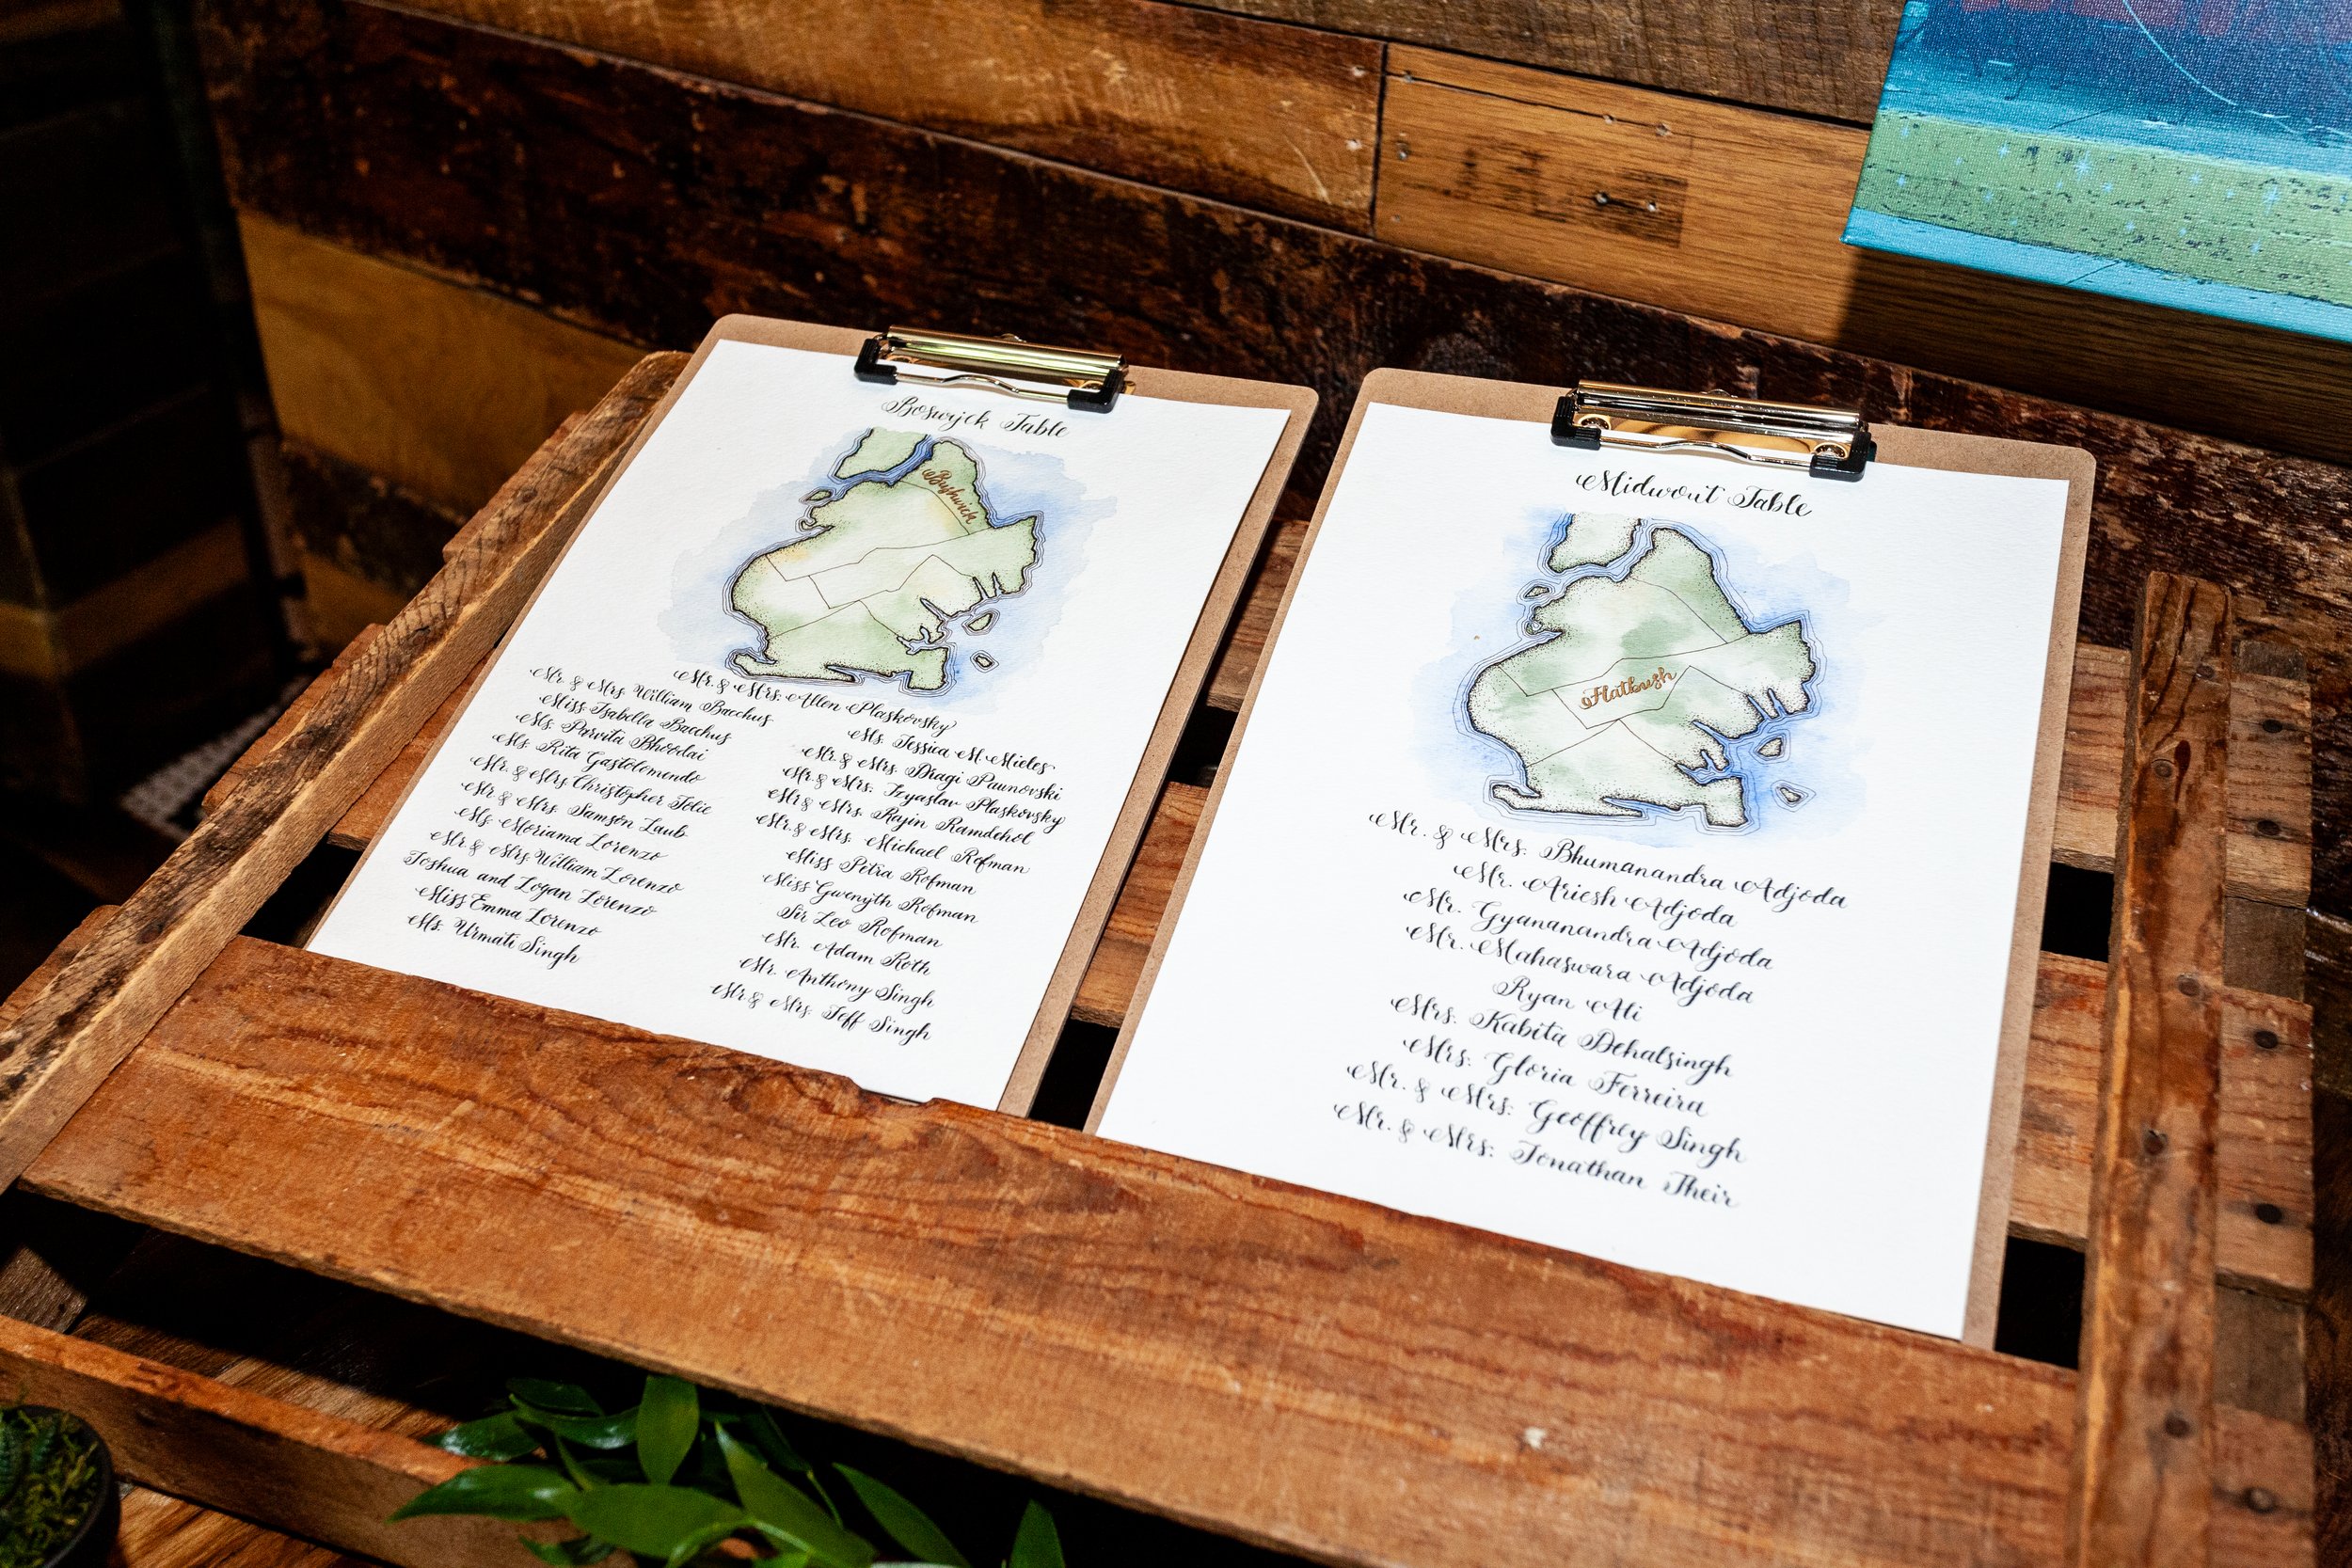 Boswijck Table
Bushwick
Mr. & Mrs. Allen Plaskovsky
Mr. & Mrs. William Bacchus
Miss Isabella Bacchus
Ms. Parvita Bhoodai
Ms. Rita Gastolomendo
Mr. & Mrs. Christopher Jolie
Mr. & Mrs. Samson Laub
Ms. Moriama Lorenzo
Mr. & Mrs. William Lorenzo
Joshua and Logan Lorenzo
Miss Emma Lorenzo
Ms. Urmati Singh
Ms. Jessica M. Mieles
Mr. & Mrs. Dragi Paunovski
Mr. & Mrs. Izyaslav Plaskovsky
Mr. & Mrs. Rajin Ramdehol
Mr. & Mrs. Michael Rofman
Miss Petra Rofman
Miss Gwenyth Rofman
Sir Leo Rofman
Mr. Adam Roth
Mr. Anthony Singh
Mr. & Mrs. Jeff Singh
Midwout Table
Flatbush
Mr. & Mrs. Bhumanandra Adjoda
Mr. Ariesh Adjoda
Mr. Gyananandra Adjoda
Mr. Mahaswara Adjoda
Ryan Ali
Mrs. Kabita Dehalsingh
Mrs. Gloria Ferreira
Mr. & Mrs. Geoffrey Singh
Mr. & Mrs. Jonathan Their